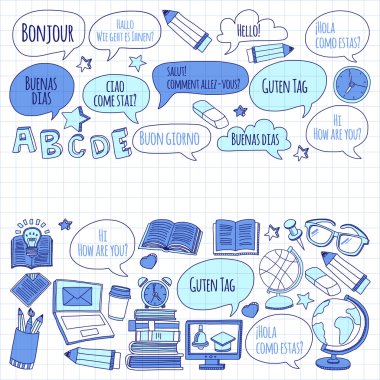 BONJOUR
HALLO
WIE GEHT ES IHNEN?
HELLO!
¡HOLA
COMO ESTAS?
BUENAS
DIAS
CIAO
COME STAI?
SALUT!
COMMENT ALLEZ-VOUS?
GUTEN TAG
ABCDE
BUON GIORNO
BUENAS DIAS
HI
HOW ARE YOU?
HI
HOW ARE YOU?
GUTEN TAG
¡HOLA
COMO ESTAS?